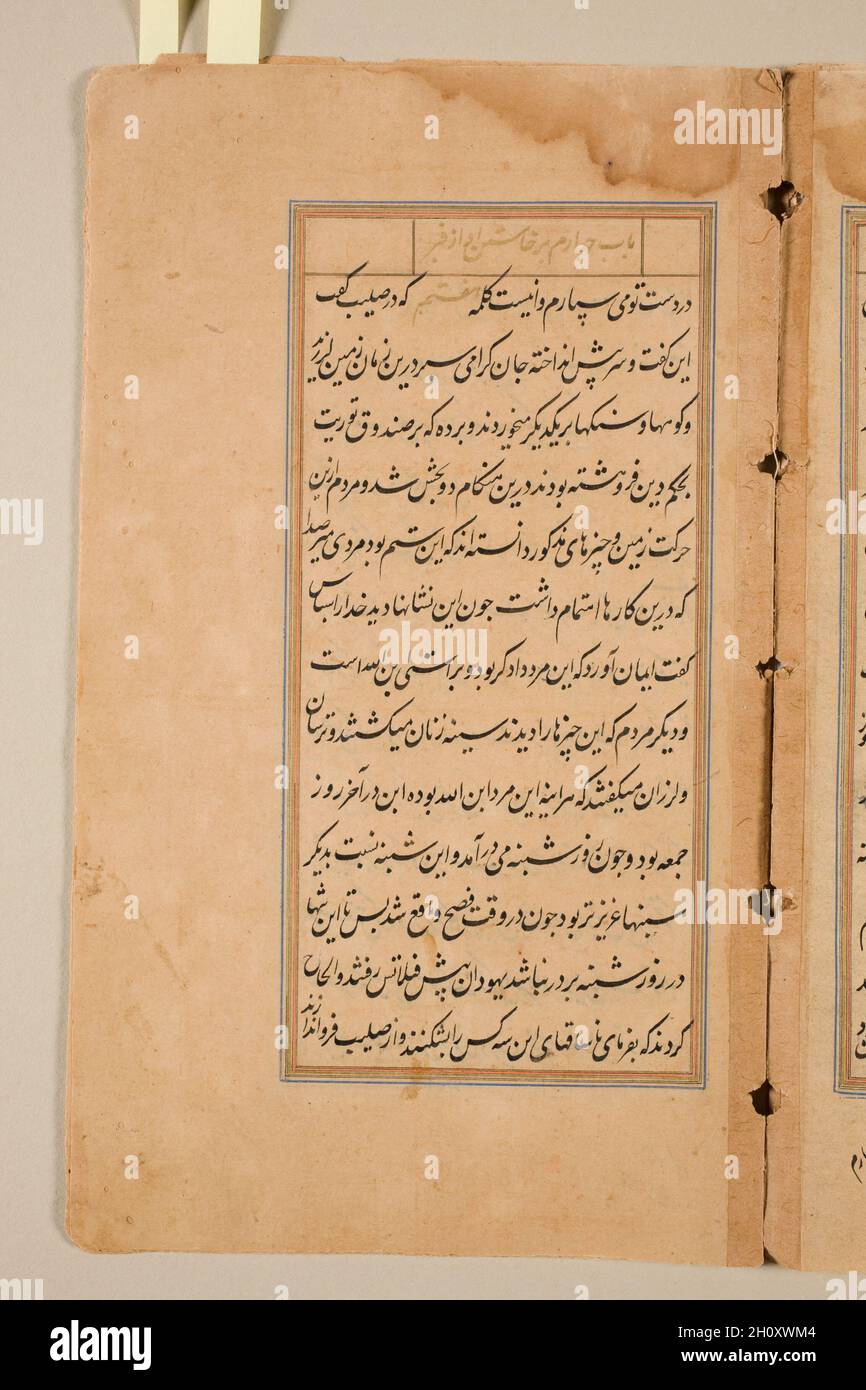 باب چهارم برخاستن او از قبر
در دست تو می سپارم و اینست کلمه هفتم که در صلیب گفت
این گفت و سر پیش انداخته جان گرامی سپرد درین زمان زمین لرزید
و کوهها و سنکها بر یکدیکر میخوردند و پرده که بر صندوق توریت
بحکم دین فروهشته بودند درین هنکام دو بخش شد و مردم ازین
حرکت زمین و چیزهای مذکور دانسته اند که این ستم بود مردی میر صد
که درین کارها اهتمام داشت چون این نشانها دید خدا را سپاس
گفت ایمان آورد که این مرد دادکر بود و براستی بن الله است
و دیکر مردم که این چیزها را دیدند سینه زنان میکشتند و ترسان
و لرزان میکفتند که هر اینه این مرد ابن الله بوده این در آخر روز
جمعه بود و چون روز شنبه می درآمد و این شنبه نسبت بدیکر
شنبها عزیزتر بود چون در وقت فصح واقع شد پس تا این تنها
در روز شنبه بر دار نباشد یهودان پیش فیلاتس رفتند و الحاح
کردند که بفرمای تا ساقهای این سه کس را بشکنند و از صلیب فرو اندازند
a
alamy
Image ID: 2H0XWM4
www.alamy.com